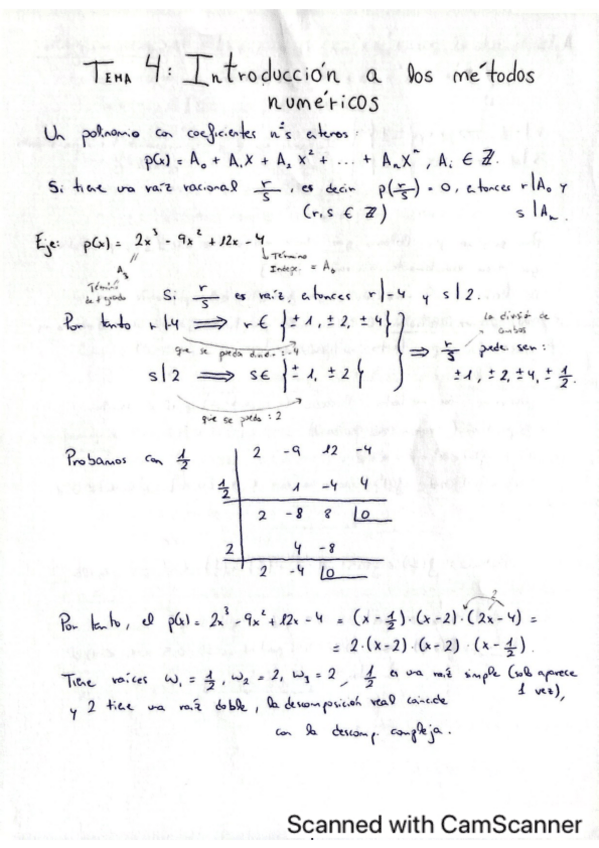 TEMA 4: Introducción a los métodos
numéricos
Un polinomio con coeficientes nºs enteros:
p(x) = A₀ + A₁X + A₂X² + ... + AₙXⁿ, Aᵢ ∈ ℤ.
Si tiene una raíz racional r/s, es decir p(r/s) = 0, entonces r|A₀ y
(r,s ∈ ℤ) s|Aₙ.
Eje: p(x) = 2x³ - 9x² + 12x - 4
Término
Indep. = A₀
A₃
Término
de 3 grado
Si r/s es raíz, entonces r|-4 y s|2.
Por tanto r|4 ⟹ r ∈ {±1, ±2, ±4}
que se pueda dividir: -4
s|2 ⟹ s ∈ {±1, ±2}
que se pueda : 2
⟹ r/s puede ser:
la división de
ambos
±1, ±2, ±4, ±1/2.
Probamos con 1/2
2 -9 12 -4
1/2 1 -4 4
2 -8 8 |0
2 4 -8
2 -4 |0
Por tanto, el p(x) = 2x³ - 9x² + 12x - 4 = (x - 1/2)·(x-2)·(2x-4) =
2
= 2·(x-2)·(x-2)·(x - 1/2).
Tiene raíces w₁ = 1/2, w₂ = 2, w₃ = 2, 1/2 es una raíz simple (solo aparece
1 vez),
y 2 tiene una raíz doble, la descomposición real coincide
con la descomp. compleja.
Scanned with CamScanner